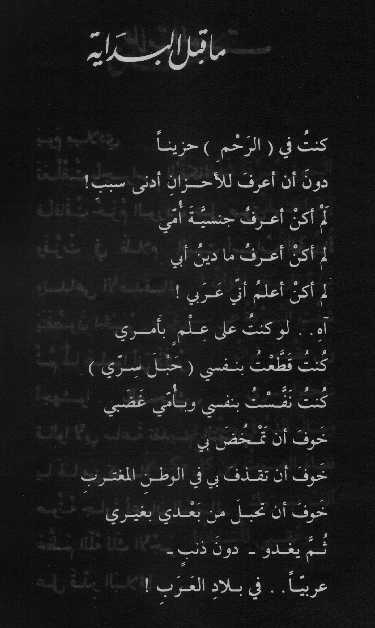 ما قبل البداية
كنتُ في ( الرَحْمِ ) حزينـاً
دونَ أن أعرفَ للأحـزانِ أدنى سبب !
لَمْ أكنْ أعـرفُ جنسيَّةَ أُمّي
لم أكنْ أعـرفُ ما دينُ أبي
لم أكنْ أعلمُ أنّي عَـرَبي !
آهِ . . لو كنتُ على عِلْـمٍ بأمـري
كُنتُ قَطَّعْتُ بنفسي ( حَبْـلَ سِـرّي )
كُنتُ نَفَّسْتُ بنفسي وبأُمّي غَضَبي
خَوفَ أن تَمْخُضَ بي
خَوفَ أن تقذفَ بي في الوطنِ المغتربِ
خَوفَ أن تحبلَ من بَعْدي بغيري
ثُـمَّ يغدو - دونَ ذنبٍ -
عربيّـاً . . في بـلادِ العَـرَبِ !